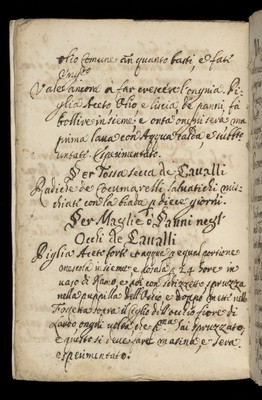 olio Comune an. quanto basti, e fati
Ung.to
Vale ancora a far crescere l'ongnia. Pi-
glia Aceto, Olio e liscia de panni, fa
bollire insieme: e onta ongni sera ma
prima laua con Acqua calda e subito
untati. Esperimentato.
Per Tossa secca de Caualli
Radiche de Cocumarelli saluatichi mis
chiati con la biada p dieci giorni.
Per Maglie ò Panni negl'
Occhi de Caualli
Piglia Aceto forte et acque p equal portione
mescola insieme e posala p 24 hore in
uaso di Ramo e poi con schizzetto spruzza
nella puppilla dell'Occhio e doppo metti nella
Fossetta sopra il ciglio dell'occhio fiore di
Lardo ongni uolta che p.ma l'ai spruzzato,
e questo si deue fare matina e sera
esperimentato.